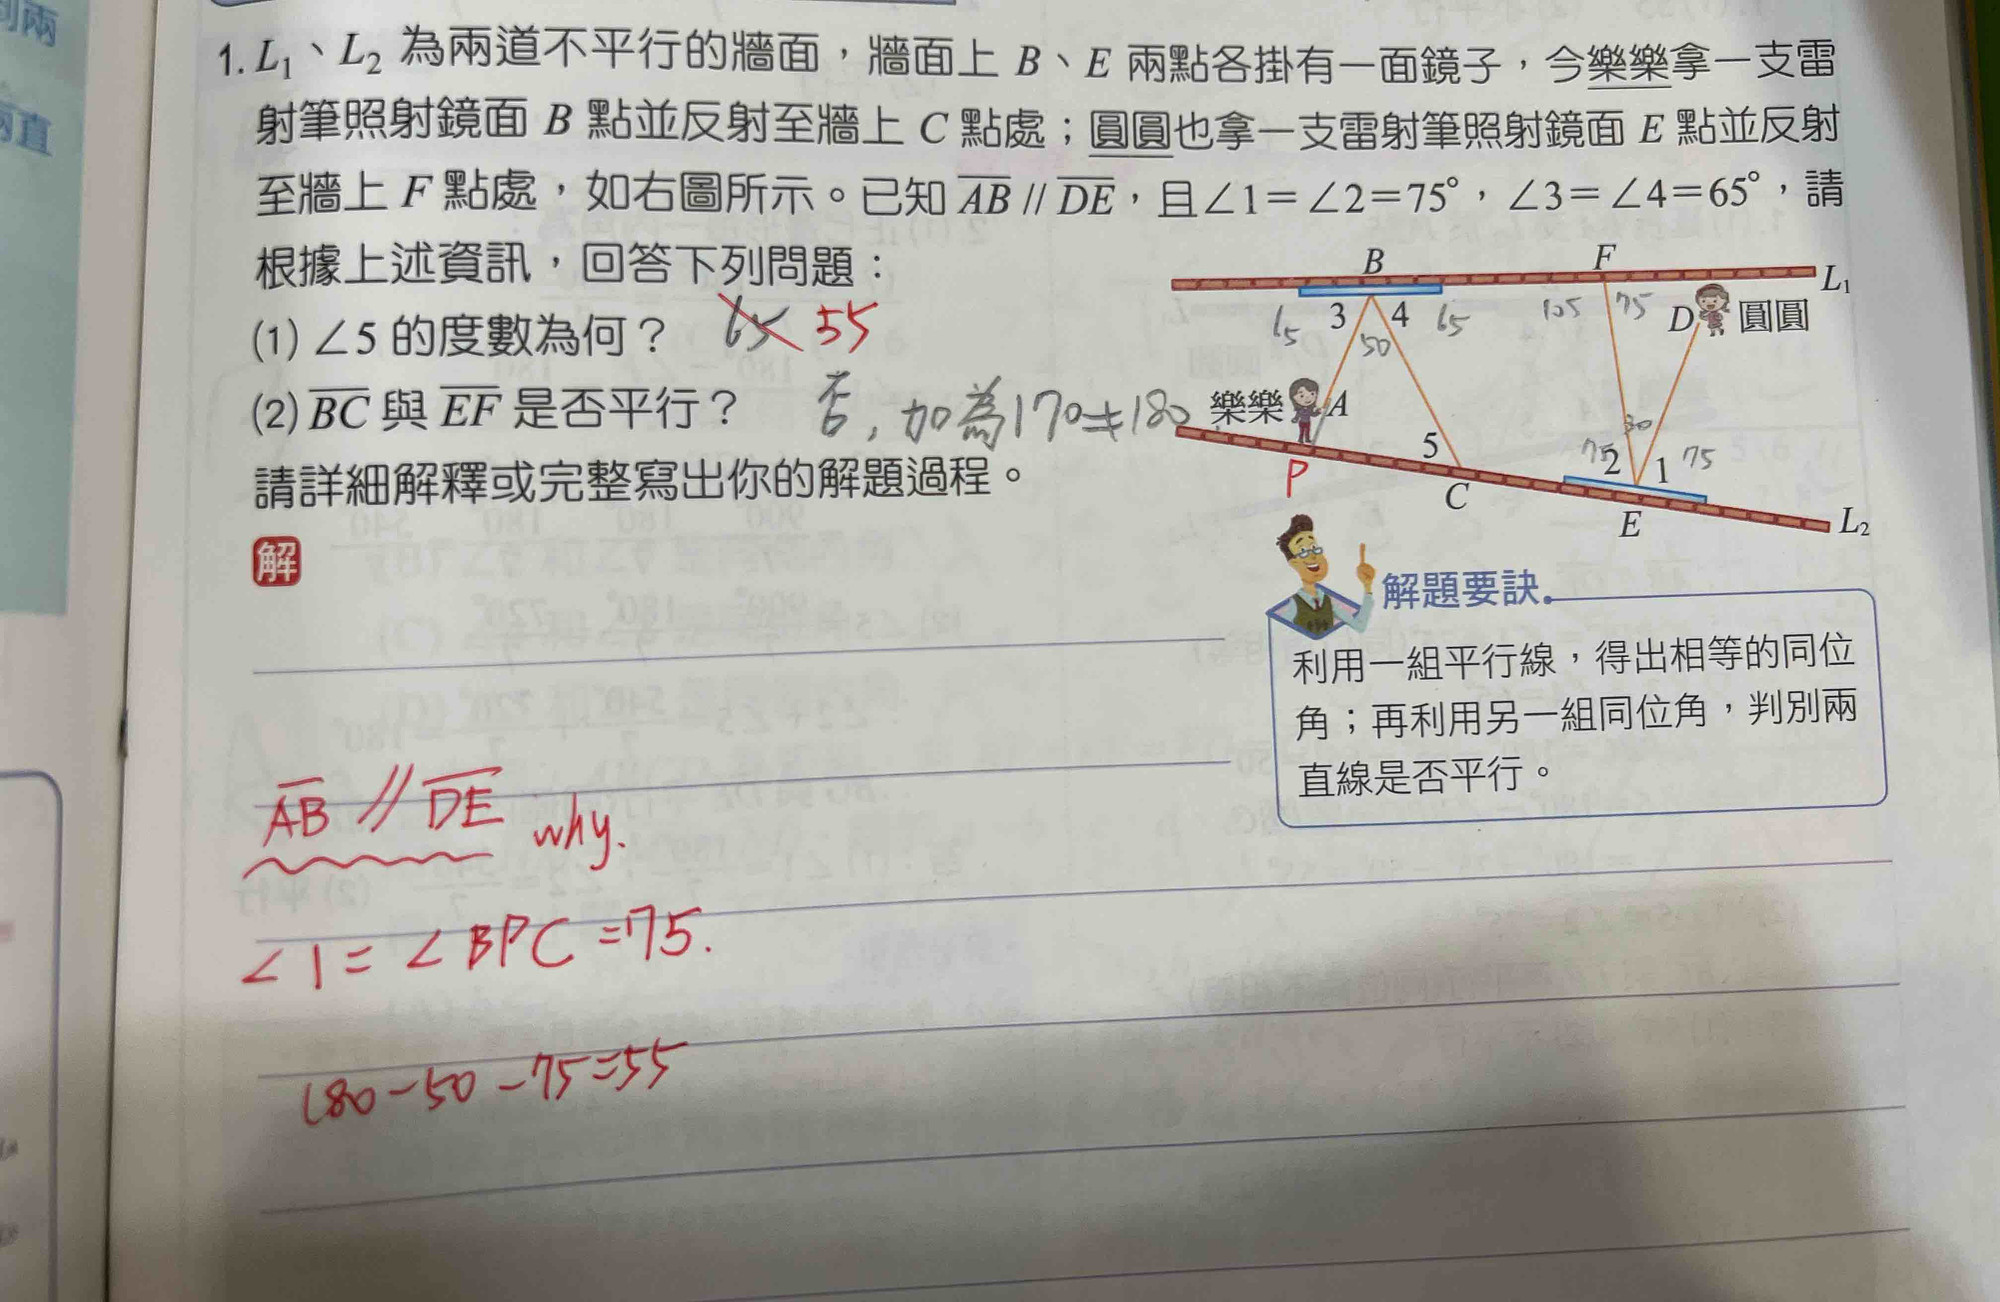 1. L₁、L₂ 為兩道不平行的牆面，牆面上 B、E 兩點各掛有一面鏡子，今樂樂拿一支雷
射筆照射鏡面 B 點並反射至牆上 C 點處；圓圓也拿一支雷射筆照射鏡面 E 點並反射
至牆上 F 點處，如右圖所示。已知 AB // DE，且∠1＝∠2＝75°，∠3＝∠4＝65°，請
根據上述資訊，回答下列問題：
(1) ∠5 的度數為何？ 65 55
(2) BC 與 EF 是否平行？ 否，加為170≠180
請詳細解釋或完整寫出你的解題過程。
解
B F L₁
65 3 4 65 105 75 D 圓圓
50
樂樂 A
5 30
75 2 1 75
P C E L₂
解題要訣
利用一組平行線，得出相等的同位
角；再利用另一組同位角，判別兩
直線是否平行。
AB // DE why.
∠1=∠BPC=75.
180-50-75=55